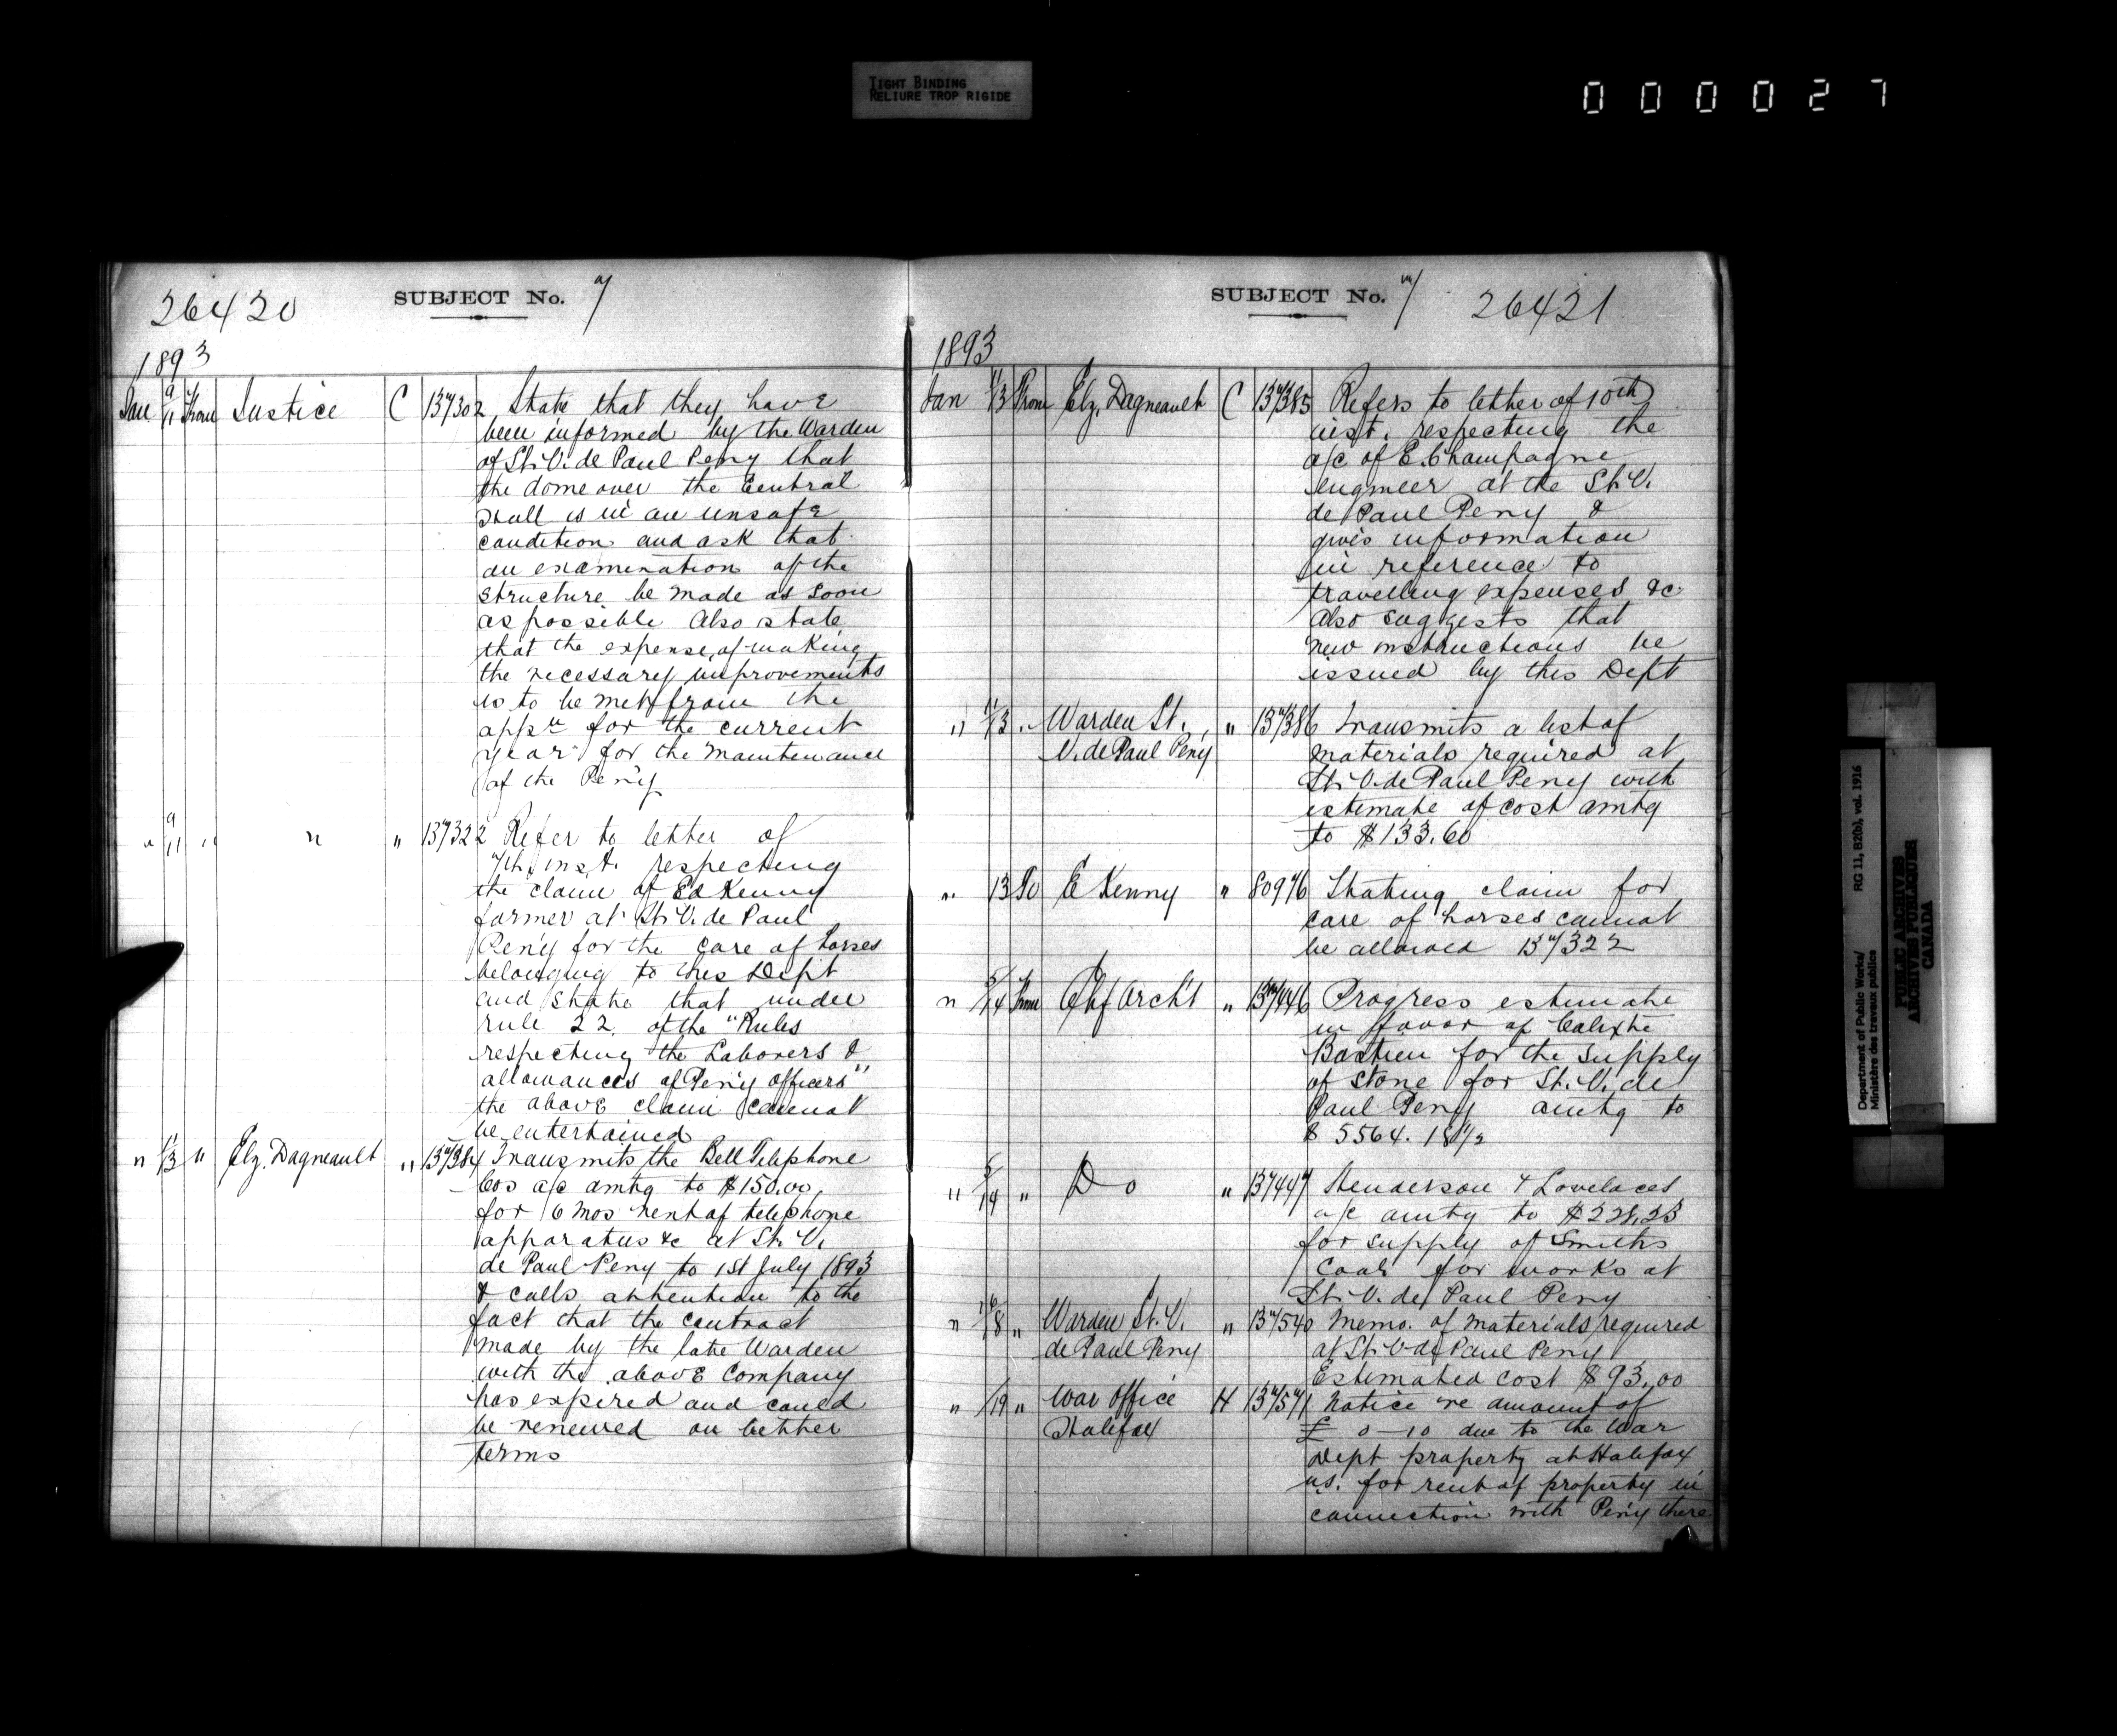 TIGHT BINDING
RELIURE TROP RIGIDE
000027
26420 SUBJECT No. 7
1893
Jan 9/11 From Justice C 137302 State that they have
been informed by the Warden
of St. V. de Paul Peny that
the dome over the Central
Hall is in an unsafe
condition and ask that
an examination of the
structure be made as soon
as possible Also state
that the expense of making
the necessary improvements
is to be met from the
appn for the current
year for the maintenance
of the Pen'y
" 9/11 " " " 137322 Refer to letter of
7th inst. respecting
the claim of Ed Kenny
farmer at St. V. de Paul
Pen'y for the care of horses
belonging to this Dept
and state that under
rule 22. of the "Rules
respecting the Laborers &
allowances of Pen'y officers"
the above claim cannot
be entertained
" 11/13 " Elz. Dagneault " 137384 Transmits the Bell Telephone
Cos a/c amtg to $150.00,
for 6 mos rent of telephone
apparatus &c at St. V.
de Paul Peny to 1st July 1893
& calls attention to the
fact that the contract
made by the late Warden
with the above Company
has expired and could
be renewed on better
terms
SUBJECT No. 7 26421
1893
Jan 11/13 From Elz. Dagneault C 137385 Refers to letter of 10th
inst. respecting the
a/c of E. Champagne
engineer at the St. V.
de Paul Peny &
gives information
in reference to
travelling expenses &c
Also suggests that
new instructions be
issued by this Dept
" 11/13 " Warden St. " 137386 Transmits a list of
V. de Paul Peny materials required at
St. V. de Paul Peny with
estimate of cost amtg
to $133.60
" 13 To E Kenny " 80976 Stating claim for
care of horses cannot
be allowed 137322
" 5/14 From Chf Arch't " 137446 Progress estimate
in favor of Calixte
Bastien for the supply
of stone for St. V. de
Paul Peny amtg to
$ 5564.
" 5/14 " Do " 137447 Henderson & Lovelaces
a/c amtg to $228.23
for supply of Smiths
Coal for works at
St. V. de Paul Peny
" 16/18 " Warden St. V. " 137540 Memo. of materials required
de Paul Peny at St. V de Paul Peny
Estimated cost $93.00
" /19 " War Office H 137571 Notice re amount of
Halifax £ 0-10 due to the War
Dept property at Halifax
N.S. for rent of property in
connection with Pen'y there
Department of Public Works/ RG 11, B2(b), vol. 1916
Ministère des travaux publics
PUBLIC ARCHIVES
ARCHIVES PUBLIQUES
CANADA